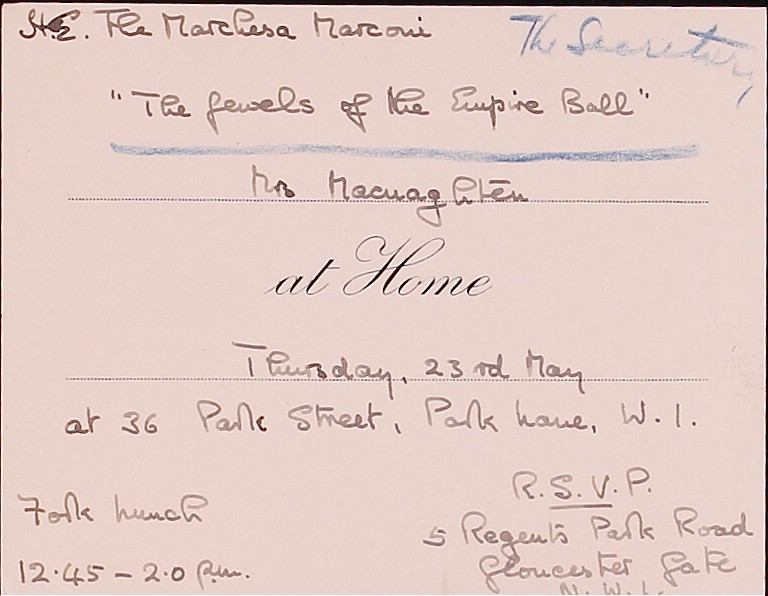 H.E. The Marchesa Marconi
The Secretary
"The Jewels of the Empire Ball"
Mrs Macnaghten
at Home
Thursday, 23rd May
at 36 Park Street, Park Lane, W.1.
Fork Lunch
12.45 - 2.0 p.m.
R.S.V.P.
5 Regents Park Road
Gloucester Gate
N.W.1.